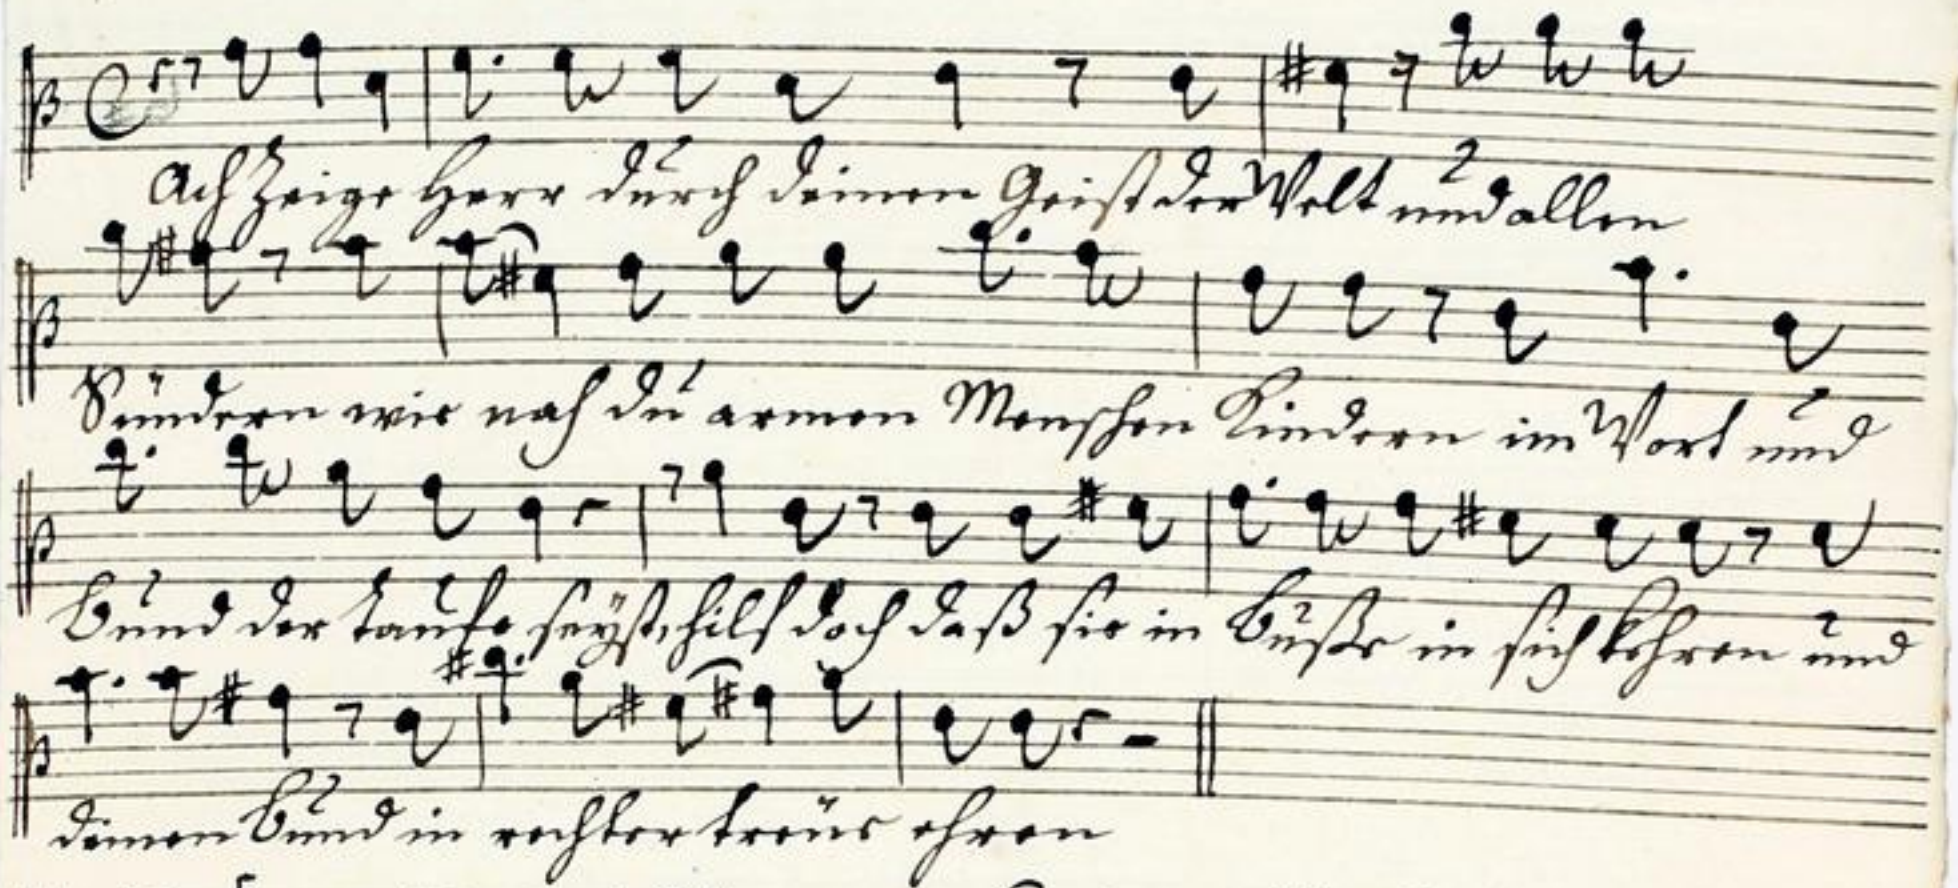 Ach Zeige Herr durch deinen Geist der Welt und allen
Sündern wie nah du armen Menschen Kindern im Wort und
Bund der Taufe seyst, hilf doch daß sie in Buße in sich kehren und
deinen Bund in rechter treüe ehren